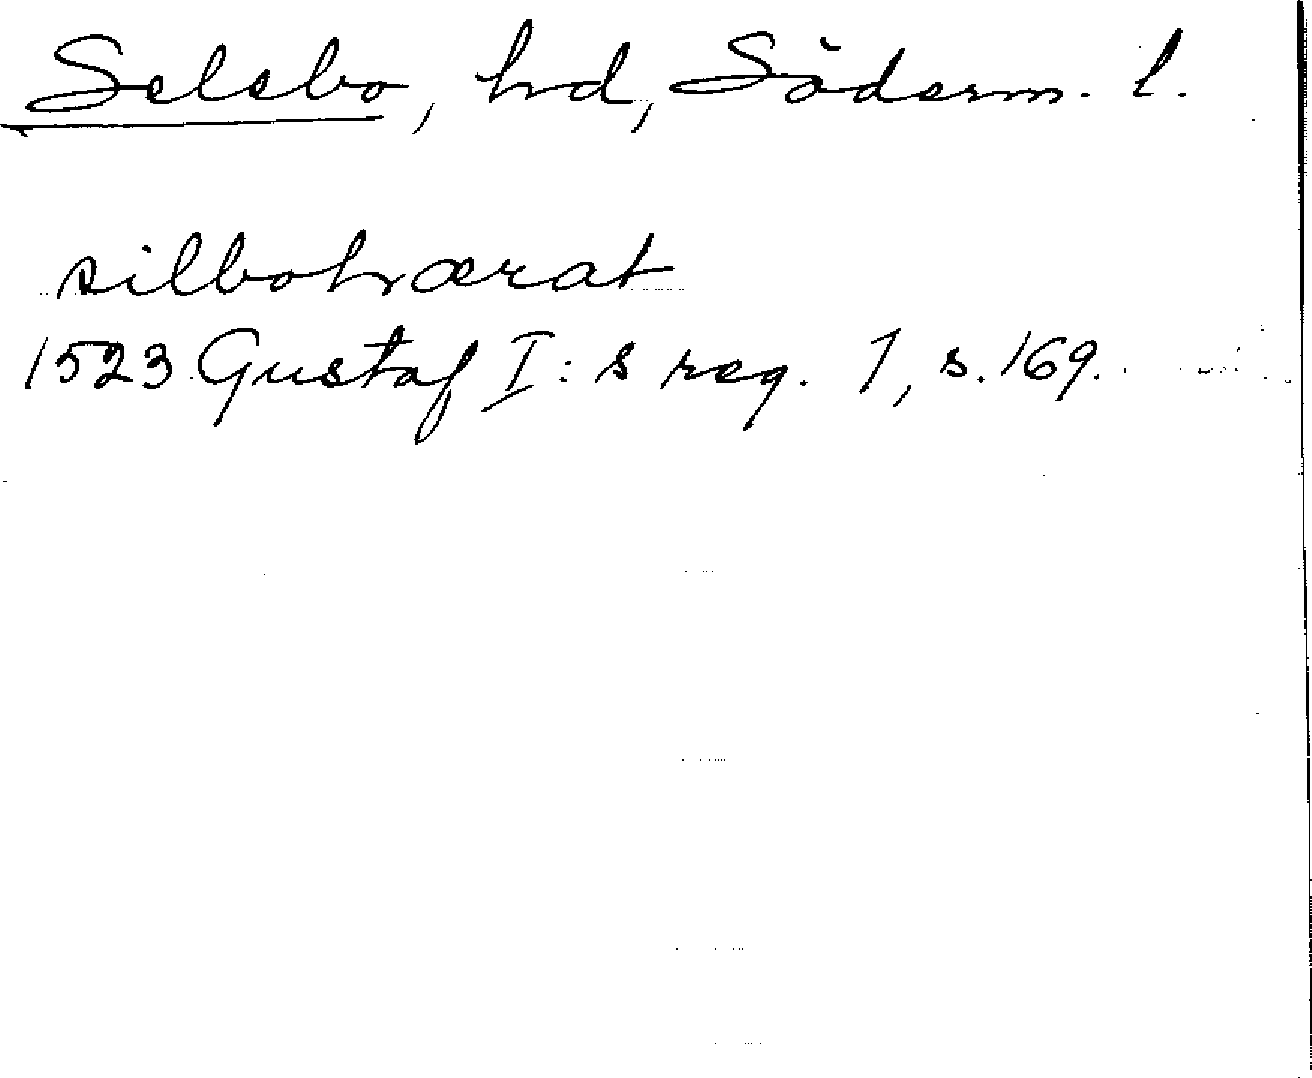 Selebo, hd, Söderm. l.
silbohærat
1523 Gustaf I:s reg. 1, s. 169.